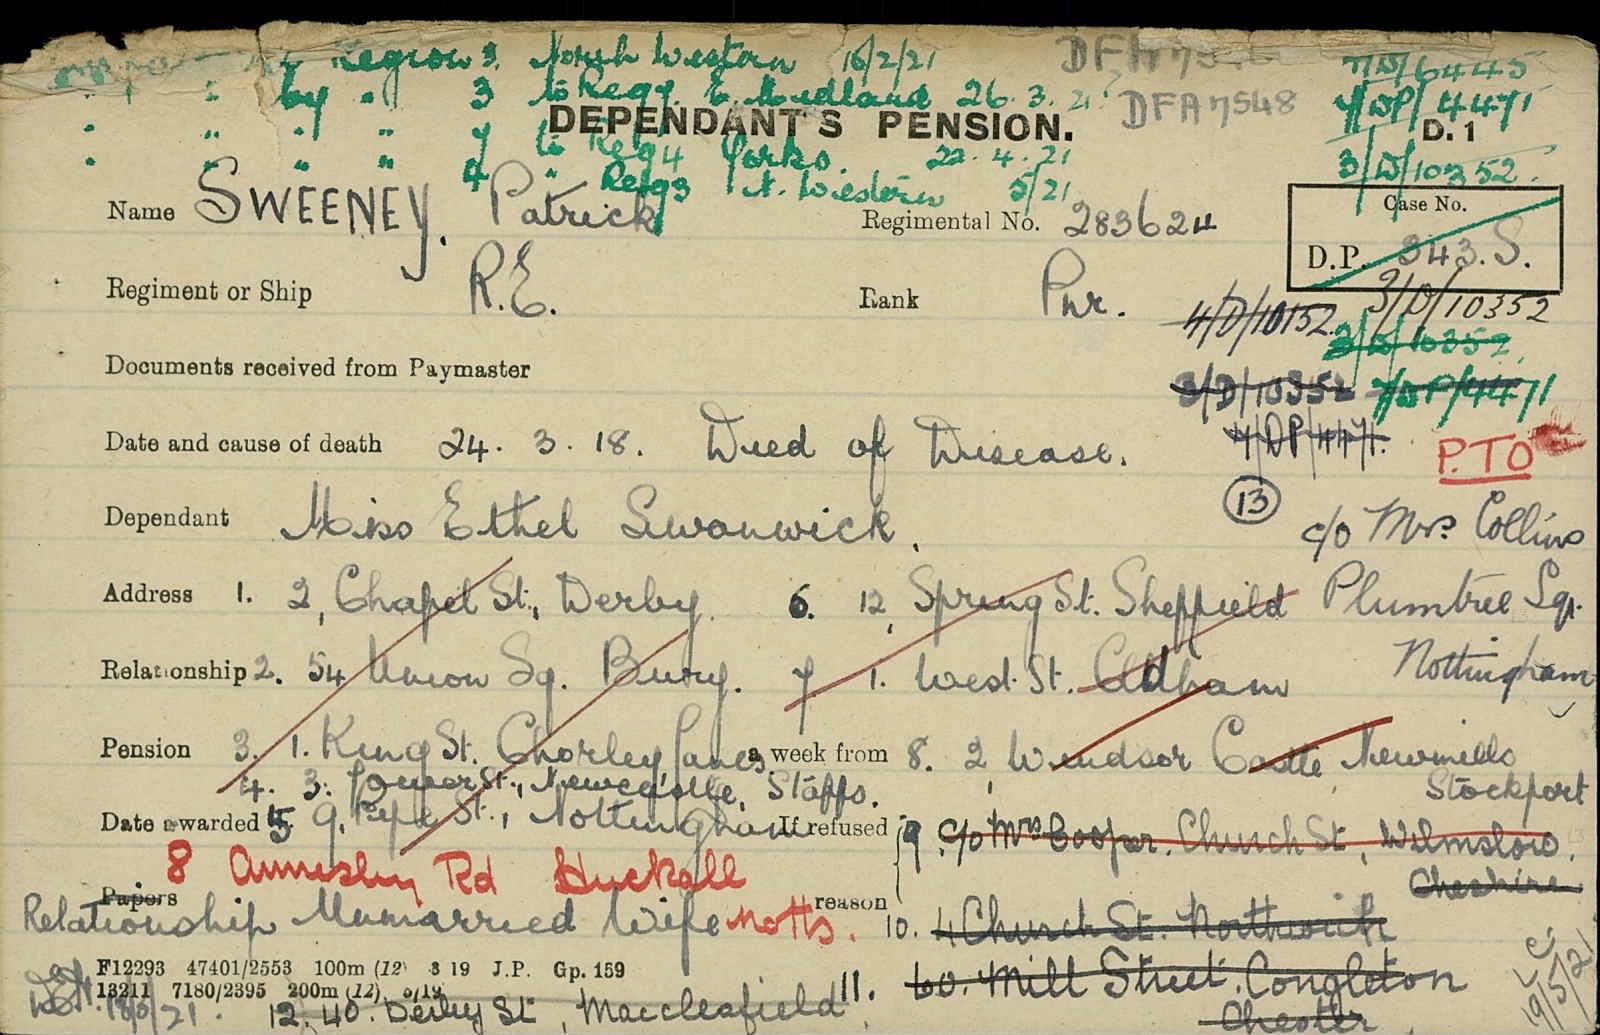 Region 3. North Western 16/2/21
" by " 3 to Reg 7. E. Midland 26.3.21
" " " 7 to Reg 4 Yorks. 22.4.21
" " " 4 " Reg 3 N. Western 5/21
DFA 7548
7/D/6445
7/DP/4471
D. 1
3/D/10352.
DEPENDANT'S PENSION.
Name SWEENEY, Patrick
Regimental No. 283624
Case No.
D.P. 343.S.
Regiment or Ship R.E.
Rank Pnr.
4/D/10152 3/D/10352
3/D/10352
3/D/10352 7/DP/4471
7/DP/4471.
Documents received from Paymaster
Date and cause of death 24.3.18. Died of Disease.
P.T.O
Dependant Miss Ethel Swanwick.
13
c/o Mrs. Collins
Plumtree Sq.
Nottingham
Address 1. 2, Chapel St., Derby. 6. 12, Spring St. Sheffield
Relationship 2. 54 Union Sq. Bury. 7. 1. West St. Oldham
Pension 3. 1. King St. Chorley, Lancs. a week from 8. 2, Windsor Castle, Newmills
Stockport
4. 3. Lower St., Newcastle, Staffs.
Date awarded 5. 9, Pepe St., Nottingham If refused 9. c/o Mrs Cooper. Church St, Wilmslow.
Cheshire
8 Annesley Rd Huckall
Papers reason
Relationship Unmarried Wife Notts. 10. 4 Church St. Northwich
F12293 47401/2553 100m (12) 3 19 J.P. Gp. 159
13211 7180/2395 200m (12) 5/19
11. 60. Mill Street. Congleton
Chester
12. 40. Derby St, Macclesfield
19/5/21